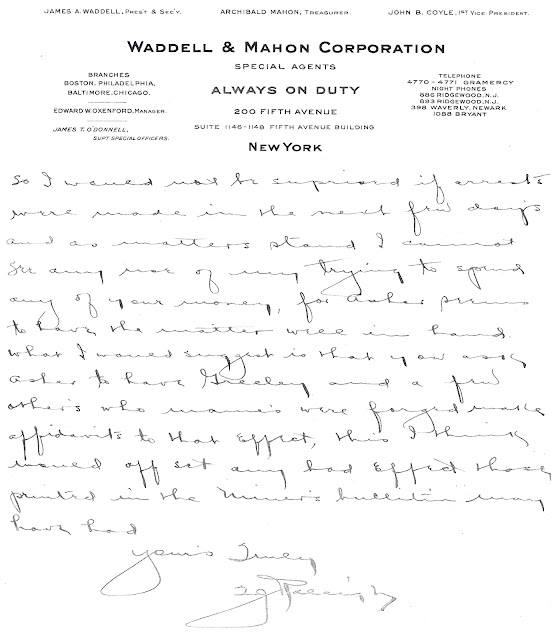 JAMES A. WADDELL, PRES'T & SEC'Y.
ARCHIBALD MAHON, TREASURER.
JOHN B. COYLE, 1ST VICE PRESIDENT.
WADDELL & MAHON CORPORATION
SPECIAL AGENTS
ALWAYS ON DUTY
200 FIFTH AVENUE
SUITE 1146-1148 FIFTH AVENUE BUILDING
NEW YORK
BRANCHES
BOSTON, PHILADELPHIA,
BALTIMORE, CHICAGO.
EDWARD W. OXENFORD, MANAGER.
JAMES T. O'DONNELL,
SUPT. SPECIAL OFFICERS.
TELEPHONE
4770-4771 GRAMERCY
NIGHT PHONES
886 RIDGEWOOD, N.J.
893 RIDGEWOOD, N.J.
398 WAVERLY, NEWARK
1088 BRYANT
So I would not be suprised if arrests
were made in the next few days
and as matters stand I cannot
see any use of my trying to spend
any of your money, for Asher seems
to have the matter well in hand.
What I would suggest is that you ask
Asher to have Greeley and a few
others who names were forged make
affidavits to that effect, this I think
would off set any bad effect those
printed in the Miners bulletin may
have had
Yours Truly